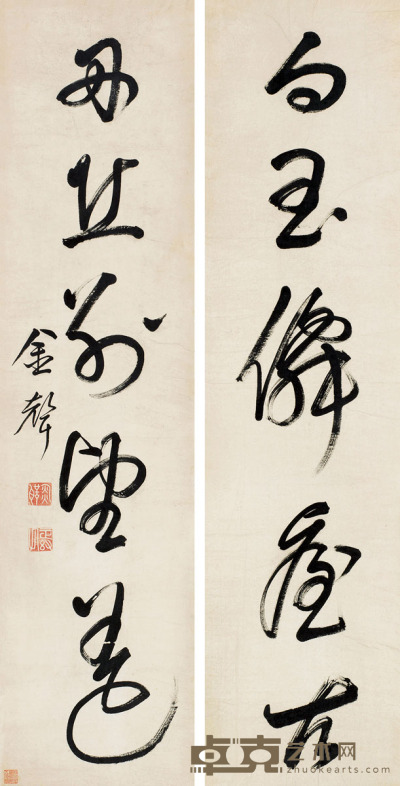 白玉僊臺古
丹丘別望遙
金聲
卓克艺术网
zhuokearts.com